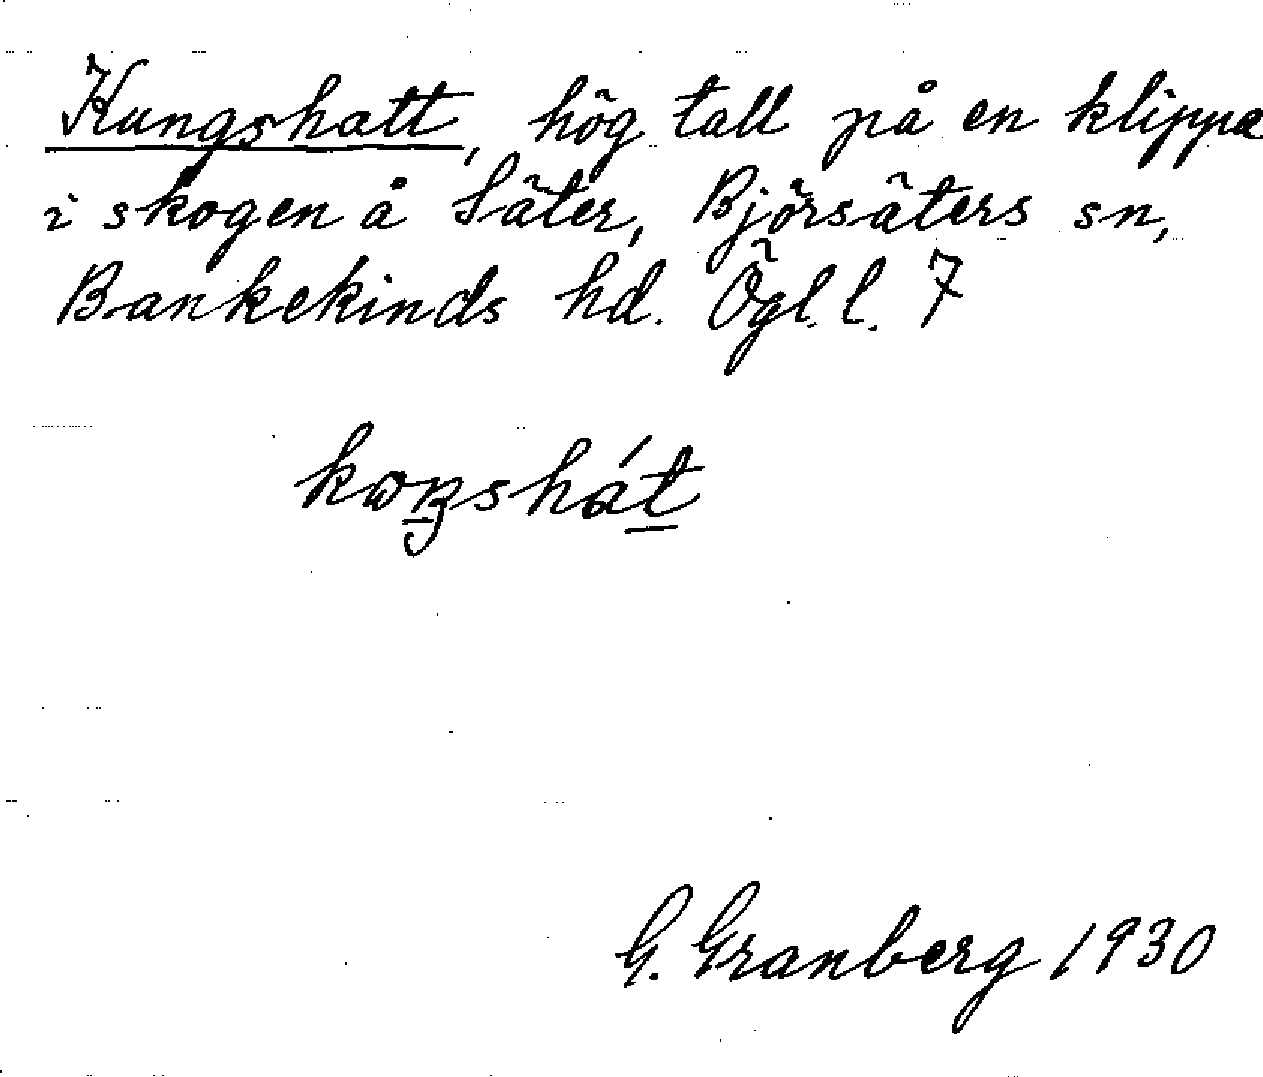 Kungshatt, hög tall på en klippa
i skogen å Säter, Björsäters sn,
Bankekinds hd. Ögl. l. 7
kωŋshát
G. Granberg 1930